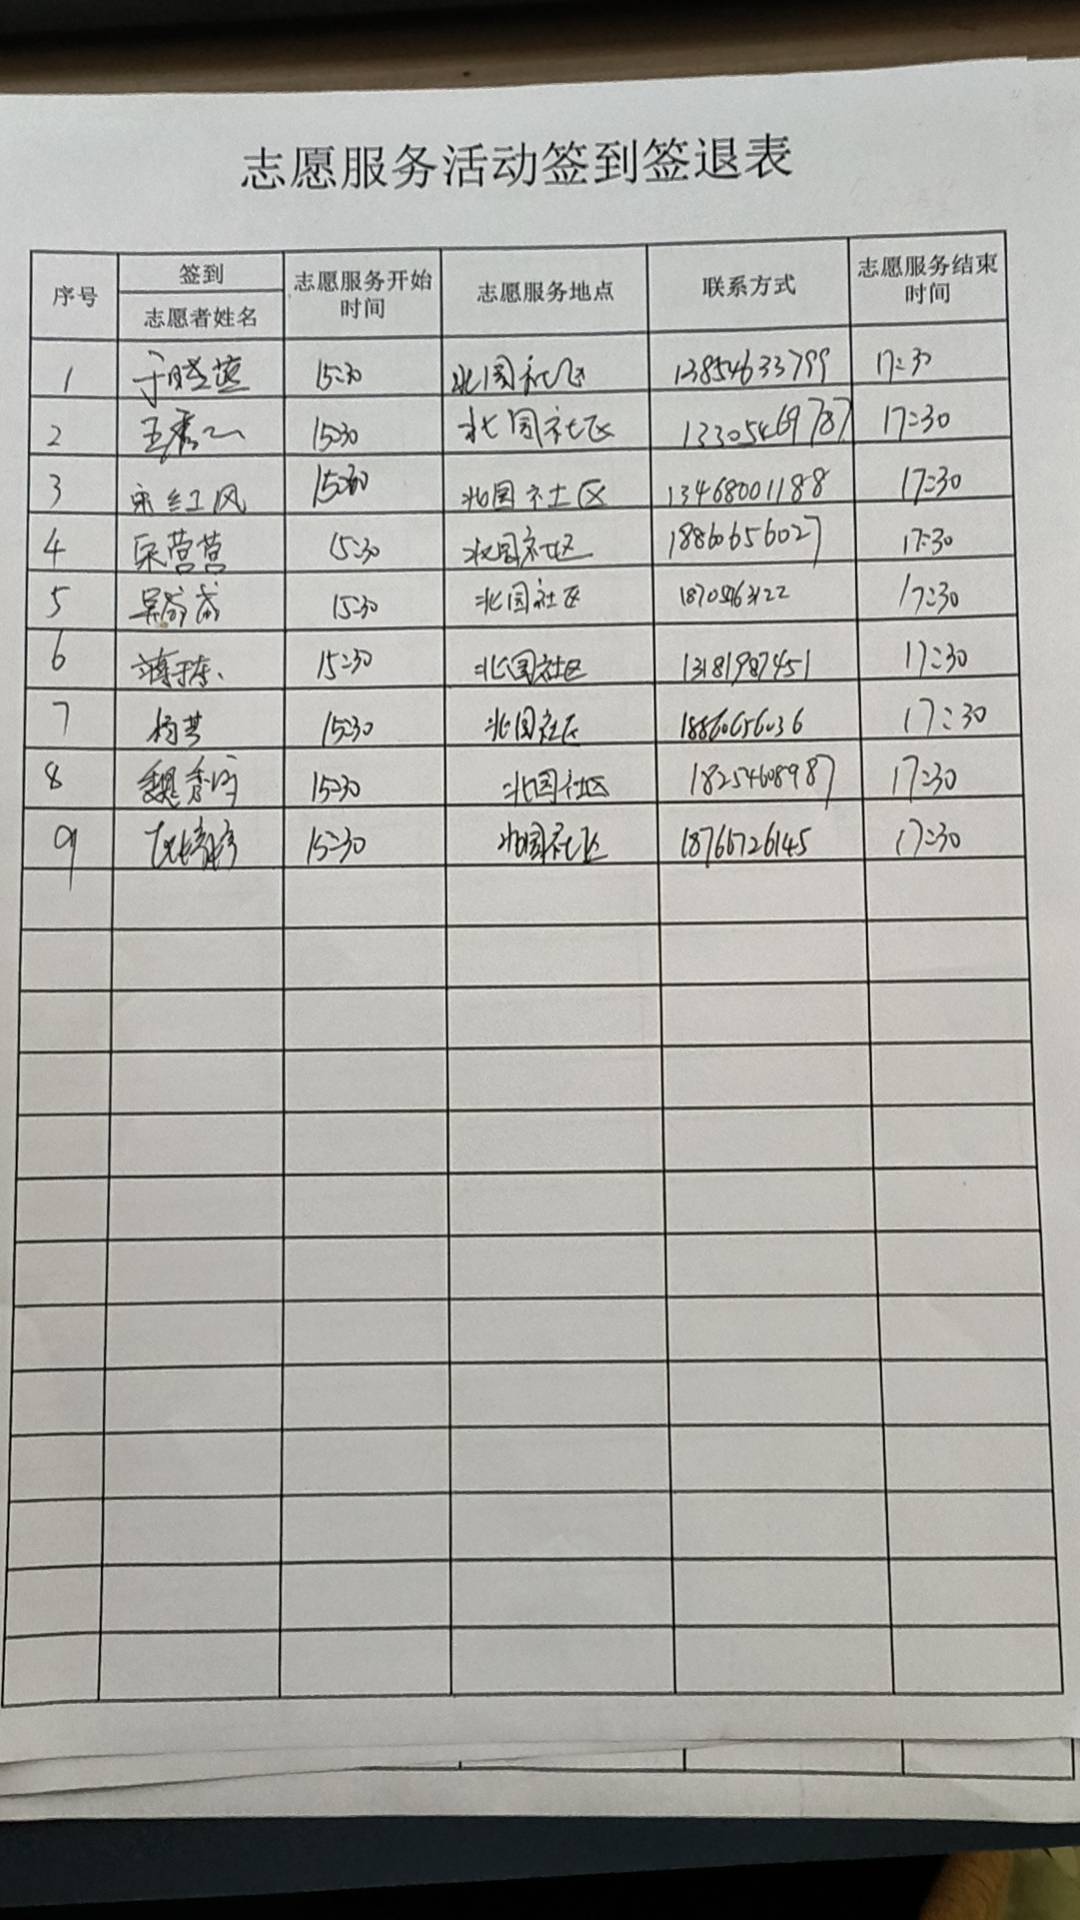 志愿服务活动签到签退表
序号 签到 志愿服务开始时间 志愿服务地点 联系方式 志愿服务结束时间
志愿者姓名
1 于晓莲 15:30 北园社区 13854633799 17:30
2 王秀 15:30 北园社区 13305469787 17:30
3 宋红风 15:30 北园社区 13468001188 17:30
4 营营 15:30 北园社区 18860656027 17:30
5 吴 15:30 北园社区 17:30
6 15:30 北园社区 13181987451 17:30
7 杨芳 15:30 北园社区 18860656036 17:30
8 魏秀 15:30 北园社区 18254608987 17:30
9 15:30 北园社区 18766726145 17:30